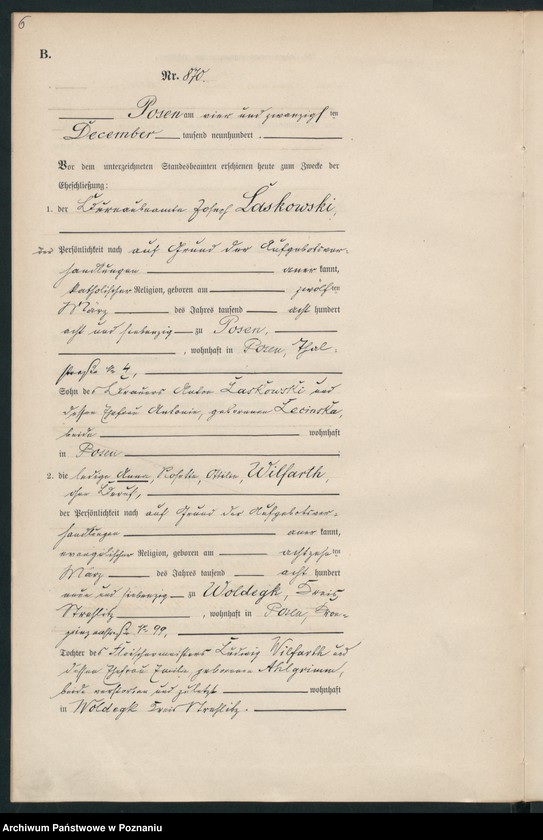 6
B.
Nr. 870.
Posen am vier und zwanzigsten
December tausend neunhundert .
Vor dem unterzeichneten Standesbeamten erschienen heute zum Zwecke der
Eheschließung:
1. der Bureaubeamte Joseph Laskowski,
der Persönlichkeit nach auf Grund der Aufgebotsver-
handlungen aner kannt,
katholischer Religion, geboren am zwölften
März des Jahres tausend acht hundert
acht und siebenzig zu Posen,
, wohnhaft in Posen, Thal-
straße № 4,
Sohn des Brauers Anton Laskowski und
dessen Ehefrau Antonie, geborenen Lecinska,
beide wohnhaft
in Posen
2. die ledige Anna, Rosette, Ottilie, Wilfarth,
ohne Beruf,
der Persönlichkeit nach auf Grund der Aufgebotsver-
handlungen aner kannt,
evangelischer Religion, geboren am achtzehnten
März des Jahres tausend acht hundert
neun und siebenzig zu Woldegk, Kreis
Strehlitz, wohnhaft in Posen,
№ 99,
Tochter des Fleischermeisters Ludwig Wilfarth und
dessen Ehefrau Emilie, geborenen Ahlgrimm,
beide verstorben und zuletzt wohnhaft
in Woldegk Kreis Strehlitz.
Archiwum Państwowe w Poznaniu